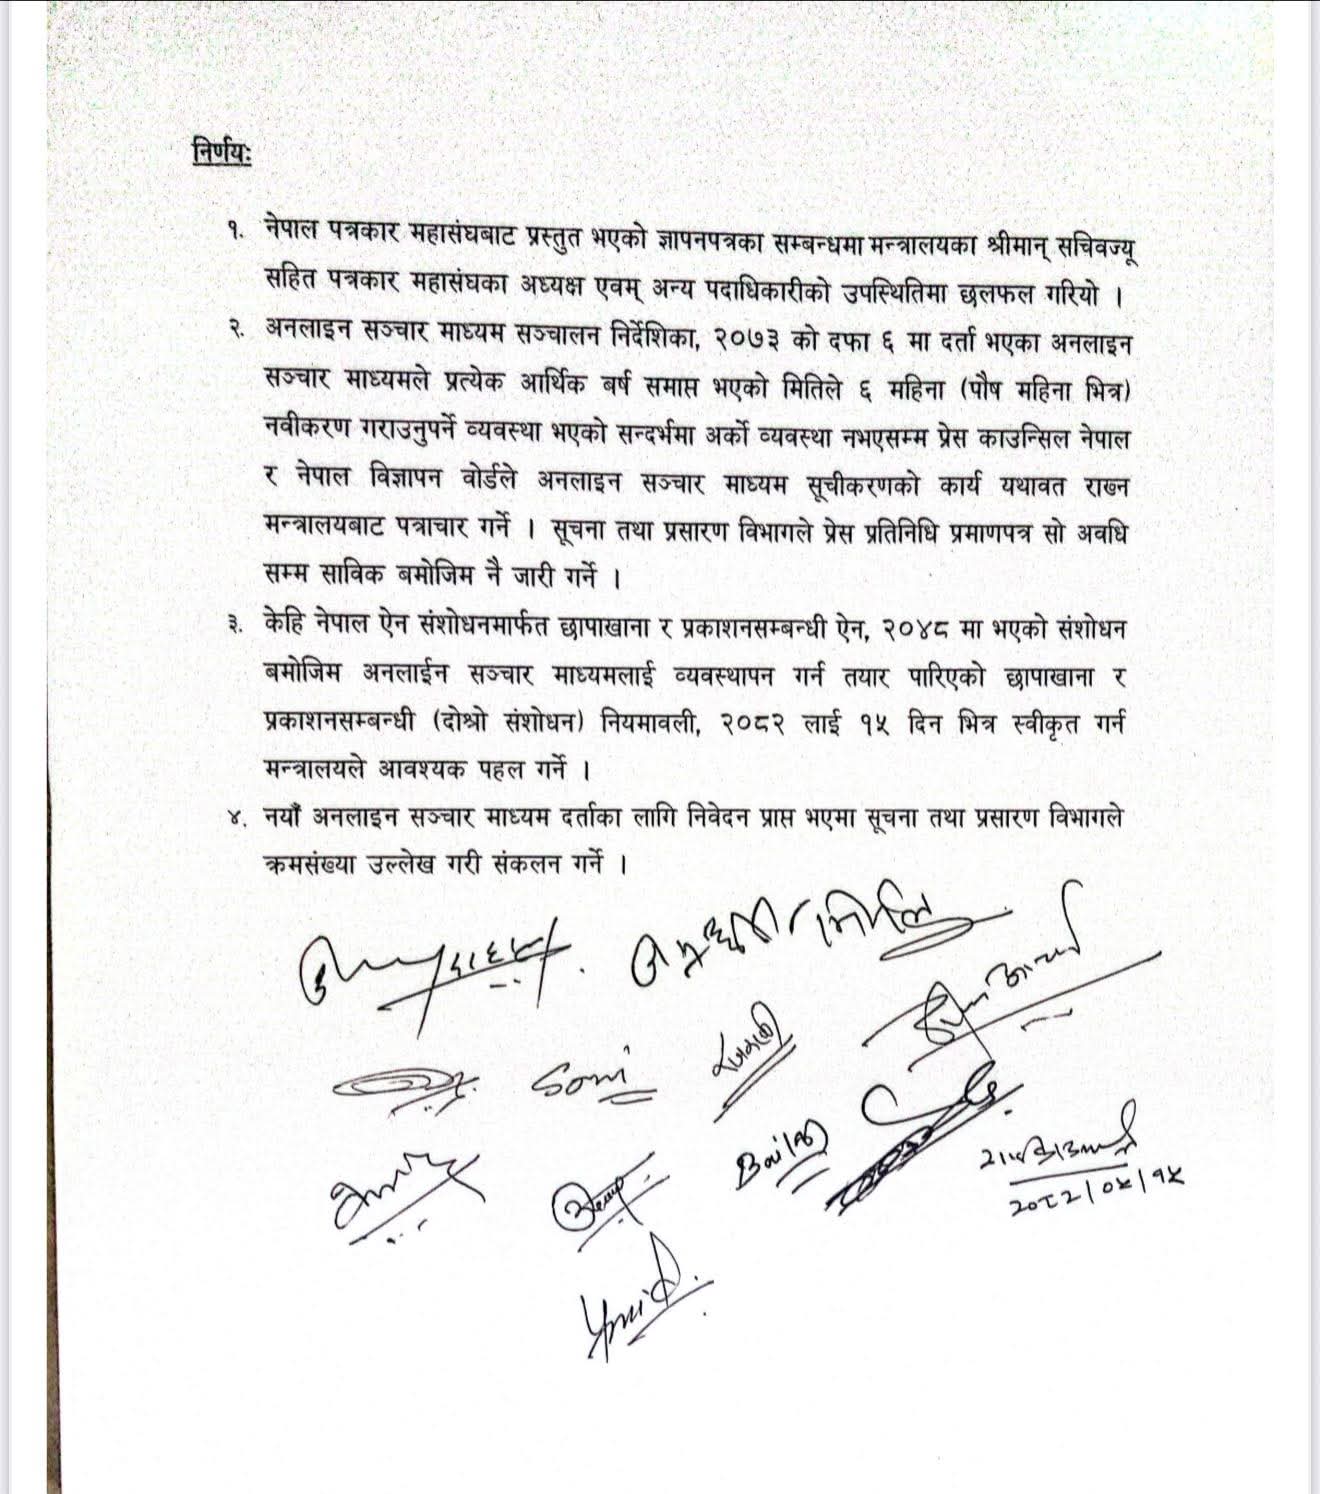 निर्णयः
१. नेपाल पत्रकार महासंघबाट प्रस्तुत भएको ज्ञापनपत्रका सम्बन्धमा मन्त्रालयका श्रीमान् सचिवज्यू
सहित पत्रकार महासंघका अध्यक्ष एवम् अन्य पदाधिकारीको उपस्थितिमा छलफल गरियो ।
२. अनलाइन सञ्चार माध्यम सञ्चालन निर्देशिका, २०७३ को दफा ६ मा दर्ता भएका अनलाइन
सञ्चार माध्यमले प्रत्येक आर्थिक बर्ष समाप्त भएको मितिले ६ महिना (पौष महिना भित्र)
नवीकरण गराउनुपर्ने व्यवस्था भएको सन्दर्भमा अर्को व्यवस्था नभएसम्म प्रेस काउन्सिल नेपाल
र नेपाल विज्ञापन वोर्डले अनलाइन सञ्चार माध्यम सूचीकरणको कार्य यथावत राख्न
मन्त्रालयबाट पत्राचार गर्ने । सूचना तथा प्रसारण विभागले प्रेस प्रतिनिधि प्रमाणपत्र सो अवधि
सम्म साविक बमोजिम नै जारी गर्ने ।
३. केहि नेपाल ऐन संशोधनमार्फत छापाखाना र प्रकाशनसम्बन्धी ऐन, २०४८ मा भएको संशोधन
बमोजिम अनलाईन सञ्चार माध्यमलाई व्यवस्थापन गर्न तयार पारिएको छापाखाना र
प्रकाशनसम्बन्धी (दोश्रो संशोधन) नियमावली, २०८२ लाई १५ दिन भित्र स्वीकृत गर्न
मन्त्रालयले आवश्यक पहल गर्ने ।
४. नयाँ अनलाइन सञ्चार माध्यम दर्ताका लागि निवेदन प्राप्त भएमा सूचना तथा प्रसारण विभागले
क्रमसंख्या उल्लेख गरी संकलन गर्ने ।
२०८२/०५/१५